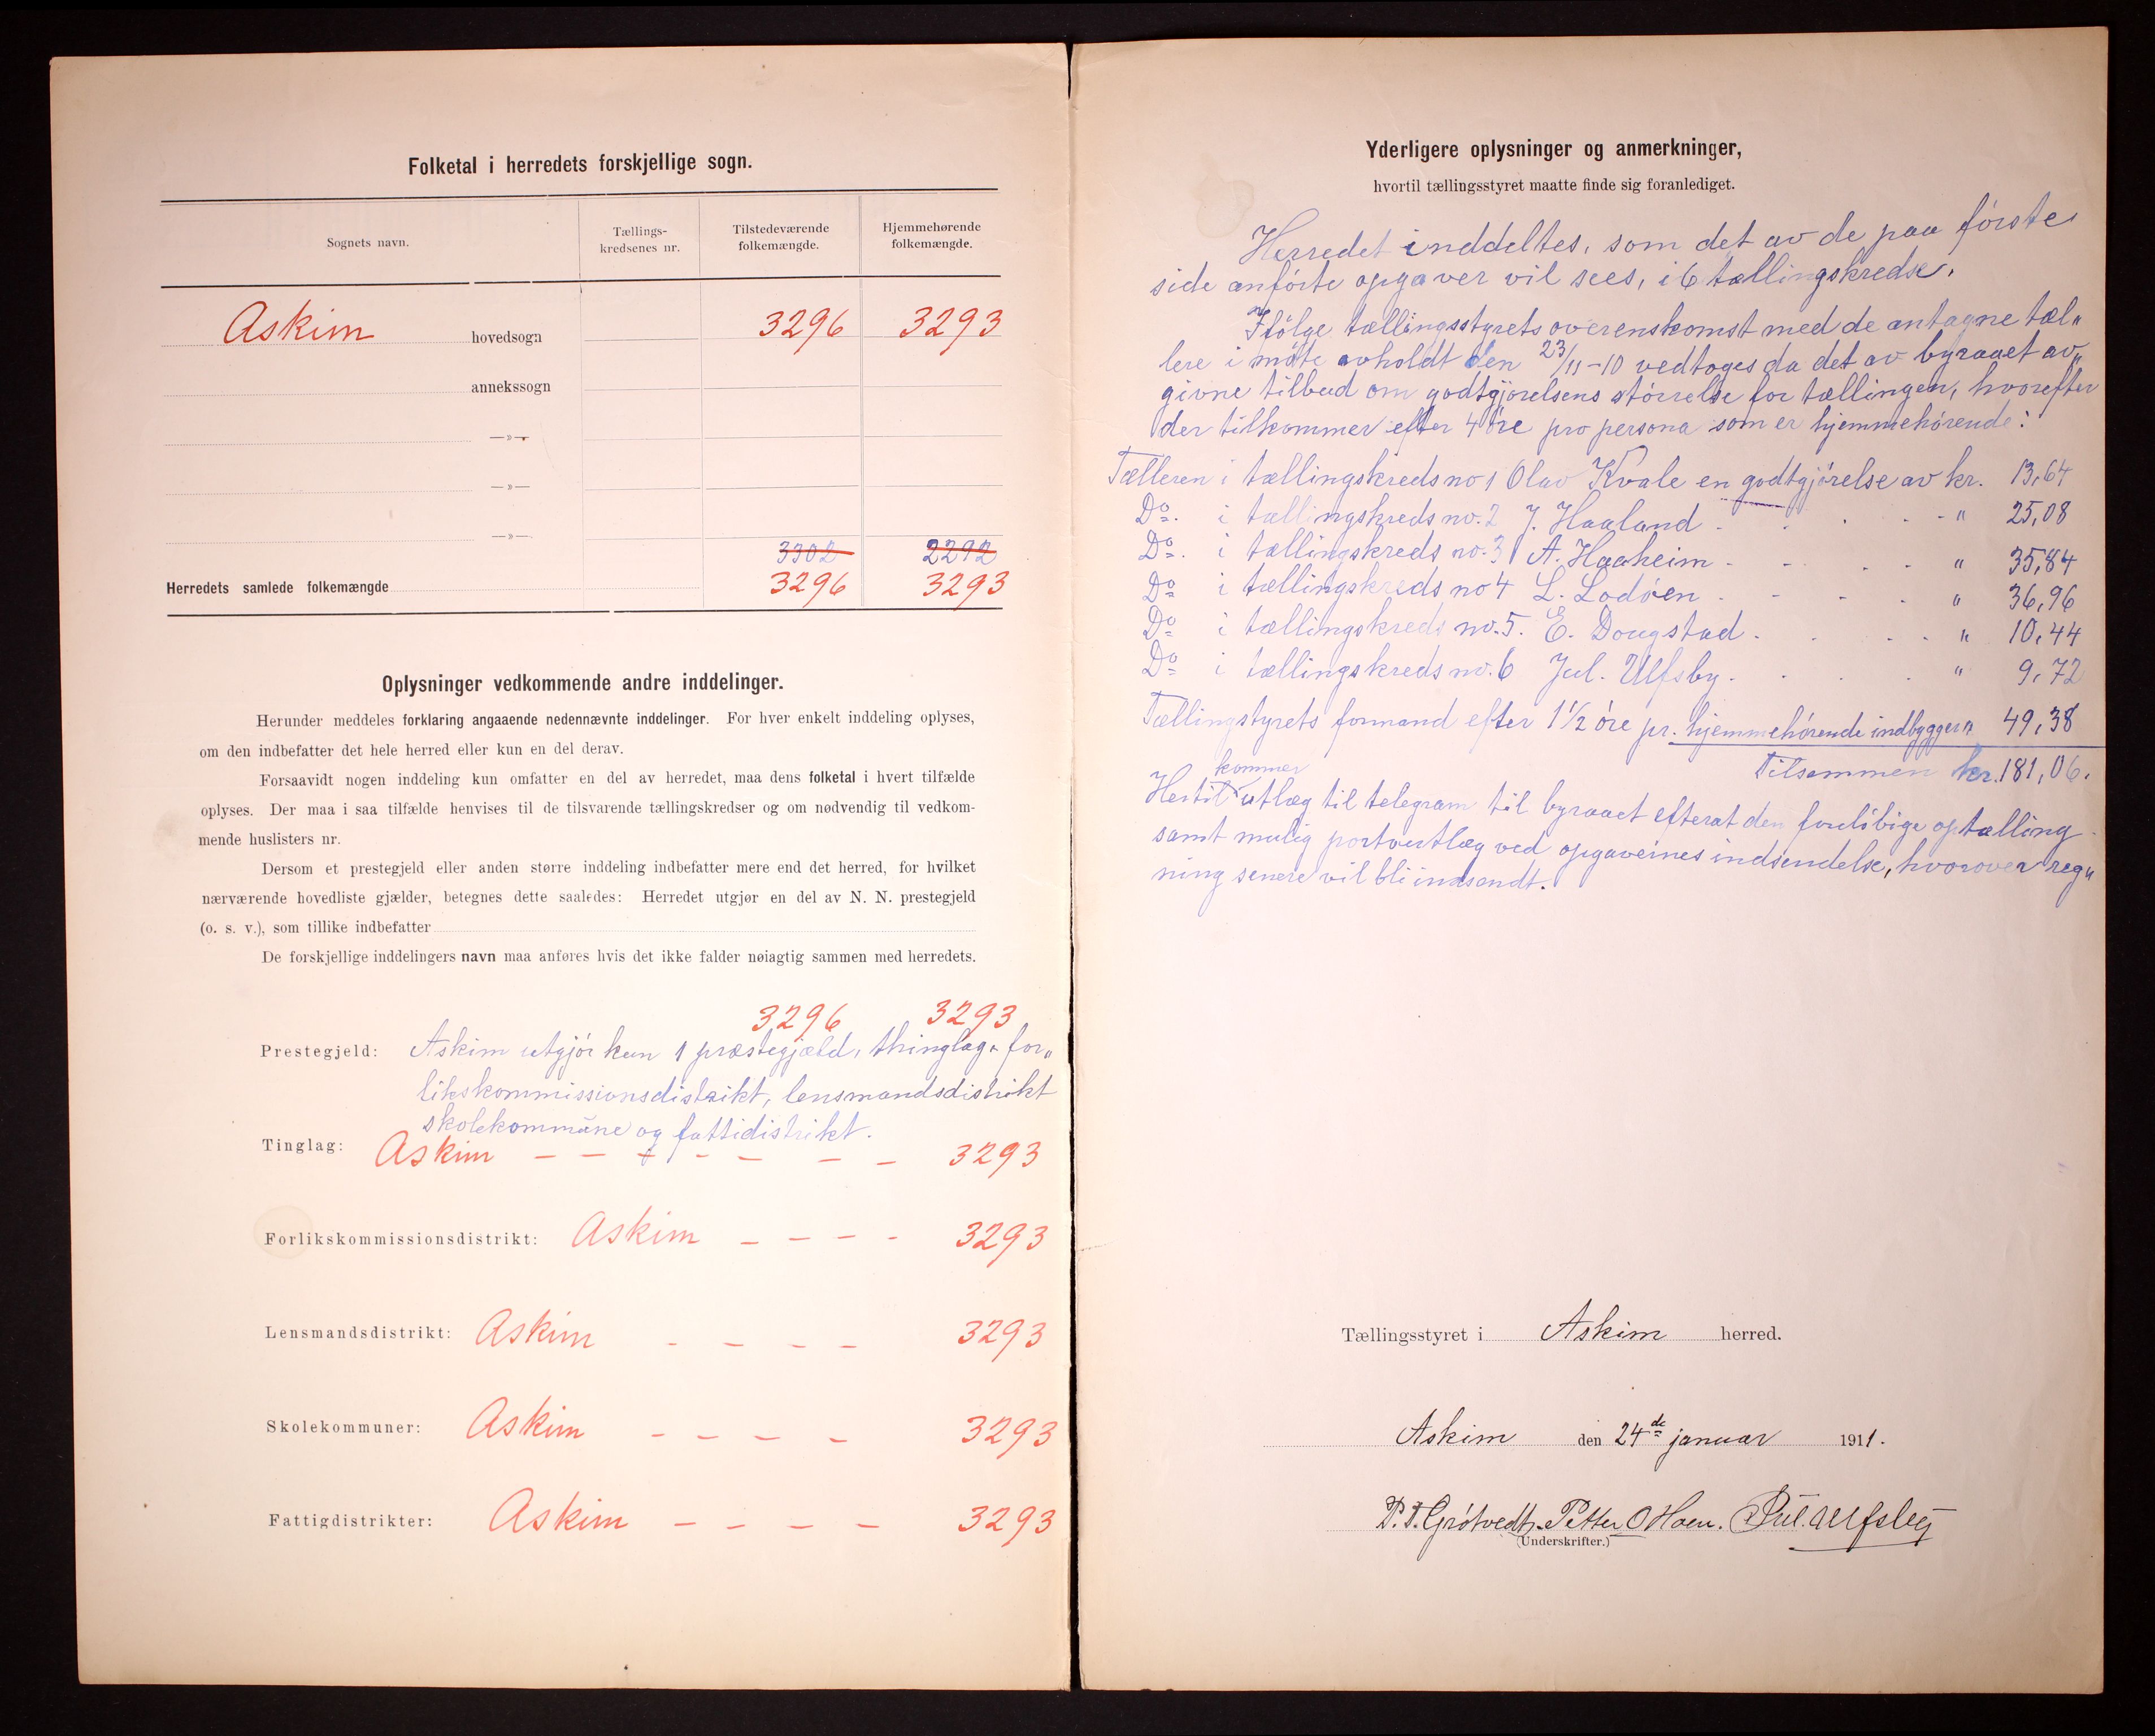 Folketal i herredets forskjellige sogn.
Sognets navn.
Tællings-
kredsenes nr.
Tilstedeværende
folkemængde.
Hjemmehørende
folkemængde.
Askim hovedsogn 3296 3293
annekssogn
—»—
—»—
—»—
3302 2292
Herredets samlede folkemængde 3296 3293
Oplysninger vedkommende andre inddelinger.
Herunder meddeles forklaring angaaende nedennævnte inddelinger. For hver enkelt inddeling oplyses,
om den indbefatter det hele herred eller kun en del derav.
Forsaavidt nogen inddeling kun omfatter en del av herredet, maa dens folketal i hvert tilfælde
oplyses. Der maa i saa tilfælde henvises til de tilsvarende tællingskredser og om nødvendig til vedkom-
mende huslisters nr.
Dersom et prestegjeld eller anden større inddeling indbefatter mere end det herred, for hvilket
nærværende hovedliste gjælder, betegnes dette saaledes: Herredet utgjør en del av N. N. prestegjeld
(o. s. v.), som tillike indbefatter
De forskjellige inddelingers navn maa anføres hvis det ikke falder nøiagtig sammen med herredets.
3296 3293
Prestegjeld: Askim utgjór kun 1 præstegjæld, thinglag, for„
likskommissionsdistrikt, lensmandsdistrikt
skolekommune og fattidistrikt.
Tinglag: Askim — — — — — — — 3293
Forlikskommissionsdistrikt: Askim — — — — 3293
Lensmandsdistrikt: Askim — — — — 3293
Skolekommuner: Askim — — — — 3293
Fattigdistrikter: Askim — — — — 3293
Yderligere oplysninger og anmerkninger,
hvortil tællingsstyret maatte finde sig foranlediget.
Herredet inddeltes, som det av de paa fórste
side anfórte opgaver vil sees, i 6 tællingskredse.
Ifólge tællingsstyrets overenskomst med de antagne tæl„
lere i móte avholdt den 23/11-10 vedtoges da det av byraaet av„
givne tilbud om godtgjórelsens stórrelse for tællingen, hvorefter
der tilkommer efter 4 óre pro persona som er hjemmehórende:
Tælleren i tællingskreds no 1 Olav Kvale en godtgjórelse av kr. 13,64
Do. i tællingskreds no. 2 J. Haaland - - - - " 25,08
Do. i tællingskreds no. 3 A. Haaheim - - - - " 35,84
Do i tællingskreds no 4 L. Lodóen - - - - " 36,96
Do i tællingskreds no. 5. E. Dougstad - - - - " 10,44
Do i tællingskreds no. 6 Jul. Ulfsby - - - - " 9,72
Tællingstyrets formand efter 1 1/2 óre pr. hjemmehórende indbygger " 49,38
Tilsammen kr. 181,06.
kommer
Hertil utlæg til telegram til byraaet efterat den forelóbige optælling
samt mulig portoutlæg ved opgavernes indsendelse, hvorover reg„
ning senere vil bli indsendt.
Tællingsstyret i Askim herred.
Askim den 24de januar 1911.
P. T. Grótvedt. Petter O Hoen. Jul. Ulfsby
(Underskrifter.)